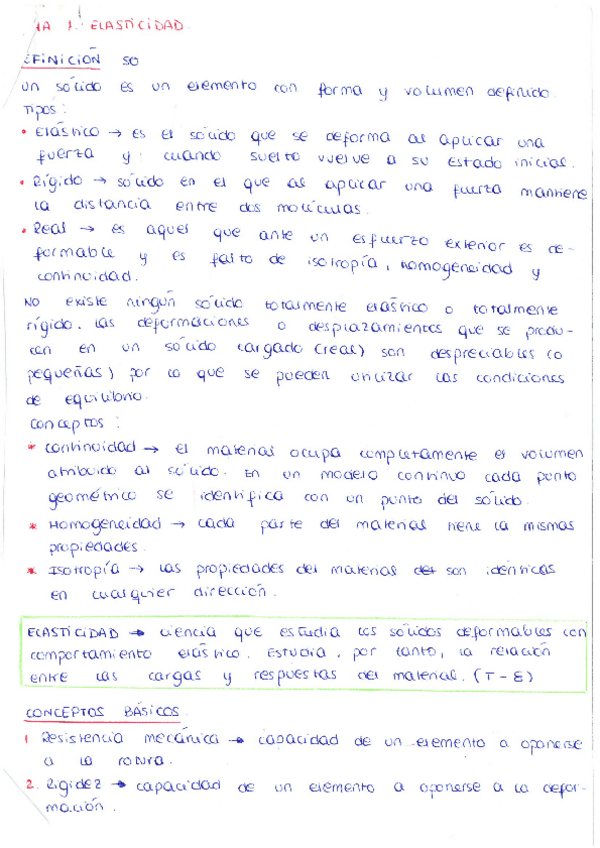 MA 1. ELASTICIDAD
DEFINICIÓN SO
Un sólido es un elemento con forma y volumen definido.
Tipos:
• Elástico → es el sólido que se deforma al aplicar una
fuerza y cuando suelto vuelve a su estado inicial.
• Rígido → sólido en el que al aplicar una fuerza mantiene
la distancia entre dos moléculas.
• Real → es aquel que ante un esfuerzo exterior es de-
formable y es falto de isotropía, homogeneidad y
continuidad.
No existe ningún sólido totalmente elástico o totalmente
rígido. Las deformaciones o desplazamientos que se produ-
cen en un sólido cargado (real) son despreciables (o
pequeñas) por lo que se pueden utilizar las condiciones
de equilibrio.
Conceptos:
* Continuidad → el material ocupa completamente el volumen
atribuido al sólido. En un modelo continuo cada punto
geométrico se identifica con un punto del sólido.
* Homogeneidad → cada parte del material tiene la mismas
propiedades.
* Isotropía → las propiedades del material son idénticas
en cualquier dirección.
ELASTICIDAD → ciencia que estudia los sólidos deformables con
comportamiento elástico. Estudia, por tanto, la relación
entre las cargas y respuestas del material. (T - ε)
CONCEPTOS BÁSICOS
1. Resistencia mecánica → capacidad de un elemento a oponerse
a la rotura.
2. Rigidez → capacidad de un elemento a oponerse a la defor-
mación.